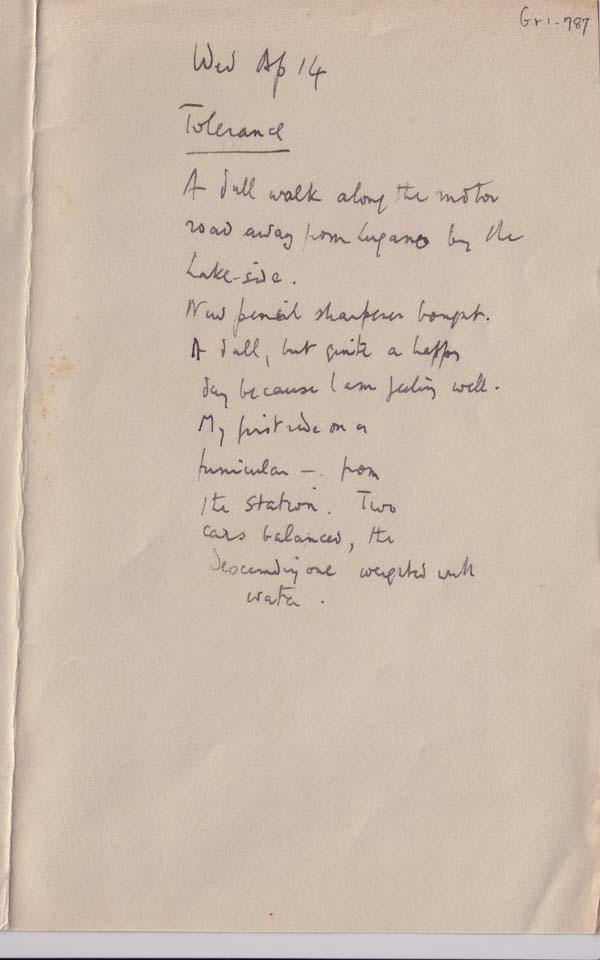 Gr1-787
Wed Ap 14
Tolerance
A dull walk along the motor
road away from Lugano by the
Lake-side.
New pencil sharpener bought.
A dull, but quite a happy
day because I am feeling well.
My first ride on a
funicular — from
the station. Two
cars balanced, the
descending one weighted with
water.